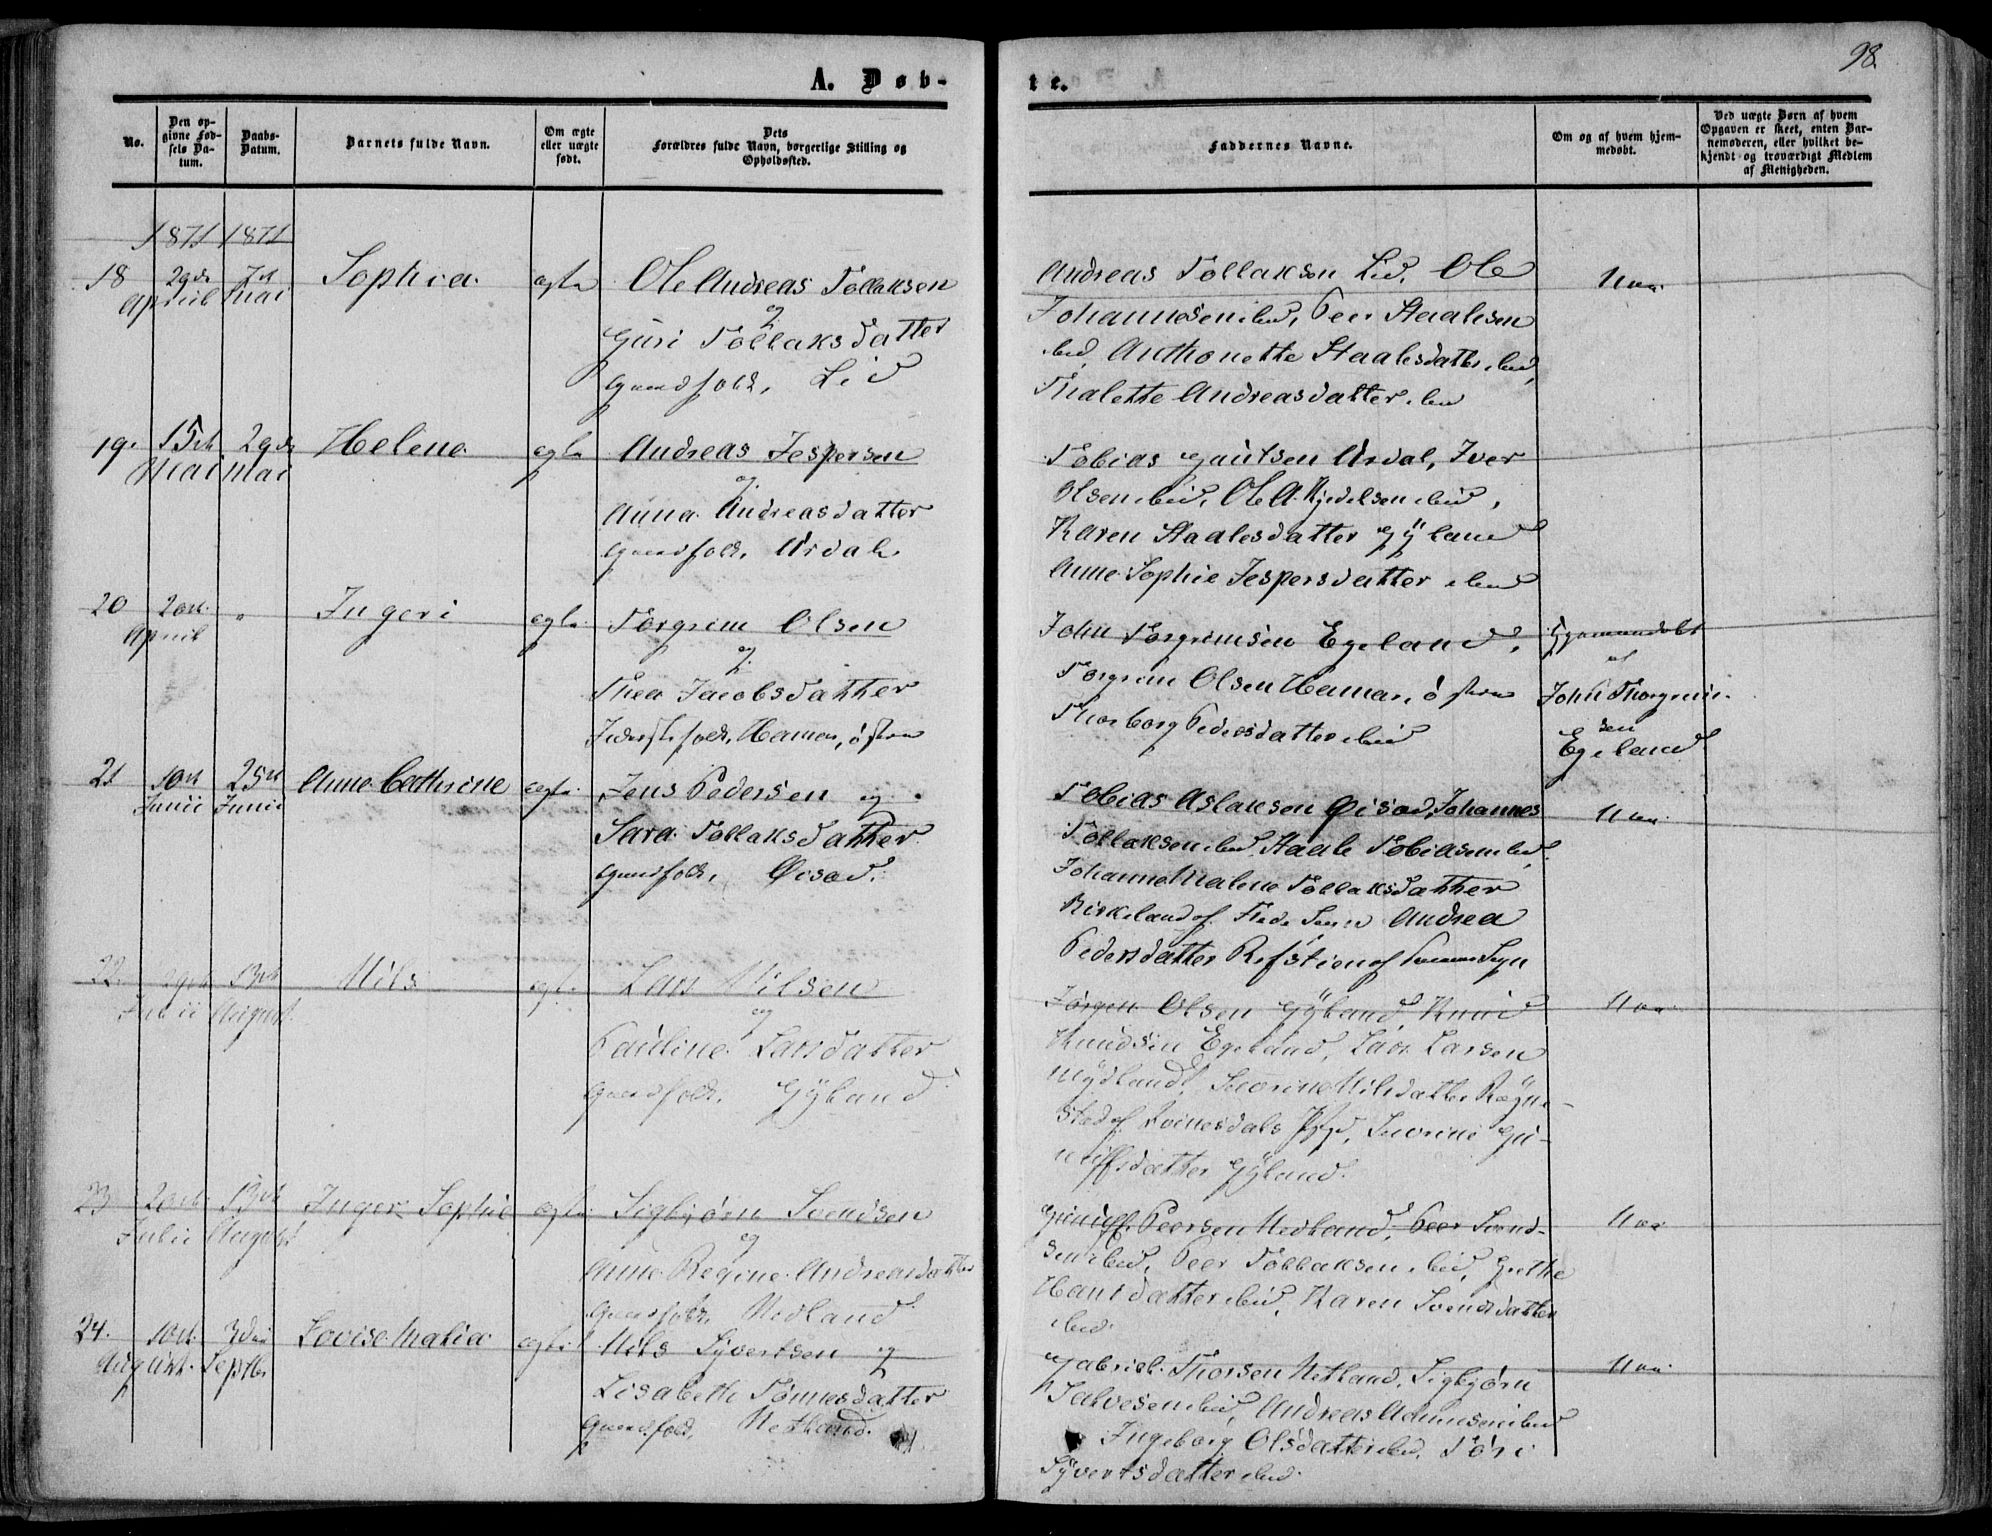 98.
A. Døb-
te.
No.
Den op-
givne Fød-
sels Da-
tum.
Daabs-
Datum.
Barnets fulde Navn.
Om ægte
eller uægte
født.
Dets
Forældres fulde Navn, borgerlige Stilling og
Opholdssted.
Faddernes Navne.
Om og af hvem hjem-
medøbt.
Ved uægte Børn af hvem
Opgaven er skeet, enten Bar-
nemoderen, eller hvilket be-
kjendt og troværdigt Medlem
af Menigheden.
1871 1871
18 29de April 7de Mai Sophia. egte
Ole Andreas Tollaksen
og
Guri Tollaksdatter
Gaardfolk, Lid
Andreas Tollaksen Lid, Ole
Johannesen ibid, Peer Staalesen
ibid, Anthonette Staalesdatter ibid,
Malette Andreasdatter ibid
19. 15de Mai 29de Mai Helene egte
Andreas Jespersen
og
Anna Andreasdatter
Gaardfolk, Urdal
Tobias Gautsen Urdal, Iver
Olsen ibid, Ole A. Kjedelsen ibid,
Karen Staalesdatter Gÿland
Anne Sophie Jespersdatter ibid
20 20de April " Ingeri egte
Torgrim Olsen
og
Thea Jacobsdatter
Inderstfolk, Hamar, østre
John Torgrimsen Egeland,
Torgrim Olsen Hamar, østre
Thorborg Pedersdatter ibid
Hjemmedøbt
af
John Thorgrim-
sen
Egeland
21 10de Junii 25de Junii Anne Cathrine egte
Jens Pedersen og
Sara Tollaksdatter
Gaardfolk, Øisæd.
Tobias Aslaksen Øisæd, Johannes
Tollaksen ibid, Staale Tobiasen ibid,
Johanne Malene Tollaksdatter
Birkeland af Andrea
Pedersdatter Refstien af Sogn
22. 29de Julii 13de August. Nils egte
Lars Nilsen
og
Pauline Larsdatter
Gaardfolk, Gÿland
Jørgen Olsen Gÿland, Knud
Knudsen Egeland, Lars Larsen
Mÿdland, Severine Nilsdatter Røyne-
stad af Qvinesdals Pgjd, Severine Gu-
nufsdatter Gÿland.
Naa
23 20de Julii 13de August Inger Sophie egte
Sigbjørn Svendsen
og
Anne Regine Andreasdatter
Gaardfolk Nedland
Gunuf Peersen Nedland, Peer Svend-
sen ibid, Peer Tollaksen ibid, Grethe
Hansdatter ibid, Karen Svendsdatter
ibid.
24. 10de August. 3die Septbr Lovise Maria egte
Nils Sÿvertsen og
Lisabeth Tønnesdatter
Gaardfolk, Netland.
Gabriel Thorsen Netland, Sigbjørn
Salvesen ibid, Andreas Adamsen ibid
Ingeborg Olsdatter ibid, Tøri
Sÿvertsdatter ibid.